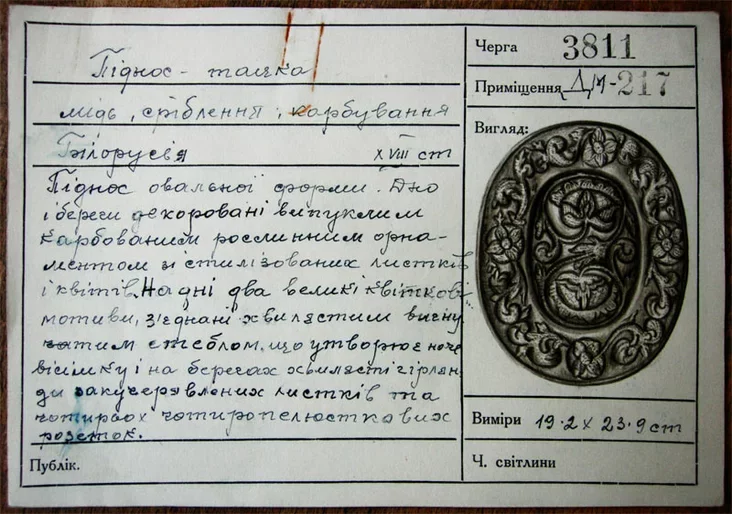 Піднос - тацка
мідь, сріблення, карбування
Білорусія XVIII ст
Піднос овальної форми. Дно
і береги декоровані випуклим
карбованим рослинним орна-
ментом зі стилізованих листків
і квітів. На дні два великі квіткові
мотиви, з'єднані хвилястим вигну
тим стеблом, що утворює наче
вісімку і на берегах хвилясті гірлян-
ди закучерявлених листків та
чотирьох чотиропелюсткових
розеток.
Публік.
Черга 3811
Приміщення ДМ-217
Вигляд:
Виміри 19.2 x 23.9 ст
Ч. світлини